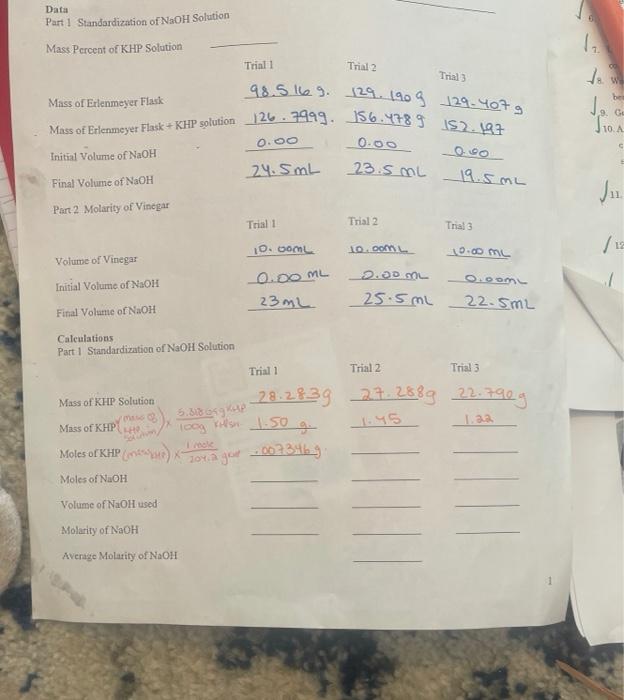 Data
Part 1 Standardization of NaOH Solution
Mass Percent of KHP Solution
Trial 1 Trial 2 Trial 3
Mass of Erlenmeyer Flask 98.516 g. 129.190 g 129.407 g
Mass of Erlenmeyer Flask + KHP solution 126.799g. 156.478 g 152.197
Initial Volume of NaOH 0.00 0.00 0.00
Final Volume of NaOH 24.5mL 23.5 mL 19.5 mL
Part 2 Molarity of Vinegar
Trial 1 Trial 2 Trial 3
Volume of Vinegar 10.00mL 10.00mL 10.00 mL
Initial Volume of NaOH 0.00 mL 0.00 mL 0.00mL
Final Volume of NaOH 23mL 25.5 mL 22.5mL
Calculations
Part 1 Standardization of NaOH Solution
Trial 1 Trial 2 Trial 3
Mass of KHP Solution 28.283g 27.288g 22.790g
Mass of KHP (mass of KHP solution) x 100g 1.50 g. 1.45 1.22
Moles of KHP (mass KHP) x 1 mole 204.2 g .007346 g.
Moles of NaOH
Volume of NaOH used
Molarity of NaOH
Average Molarity of NaOH
1
6.
7.
8. W
9.
10. A
11.
12